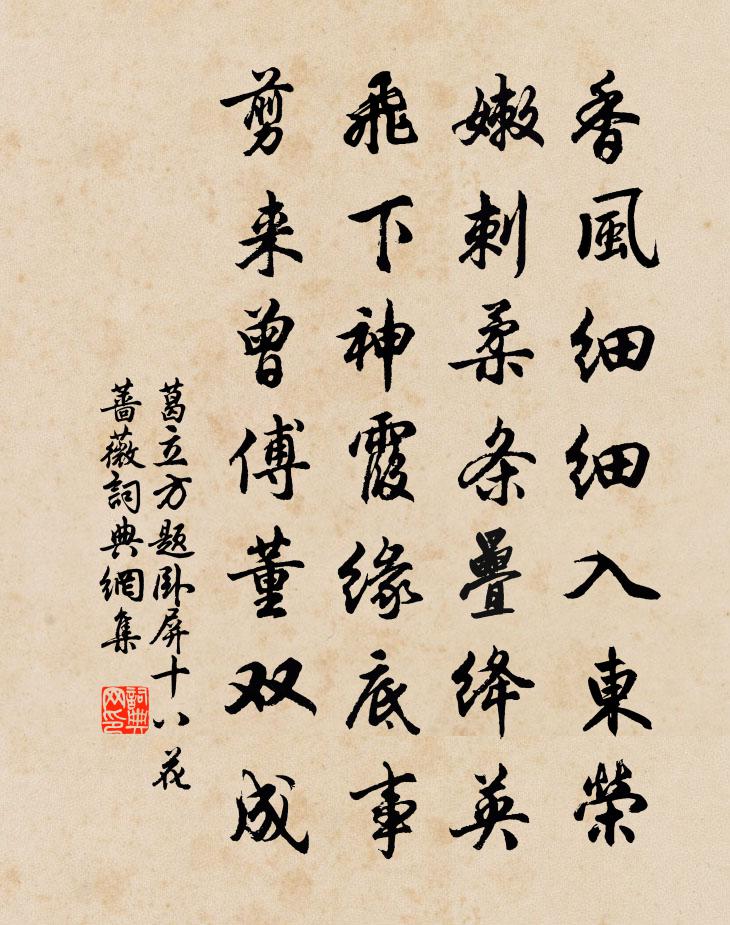 香風細細入東榮
嫩刺柔条疊绛英
飛下神霞缘底事
剪来曾傅董双成
葛立方题卧屏十八花
蔷薇詞典網集
詞典网印